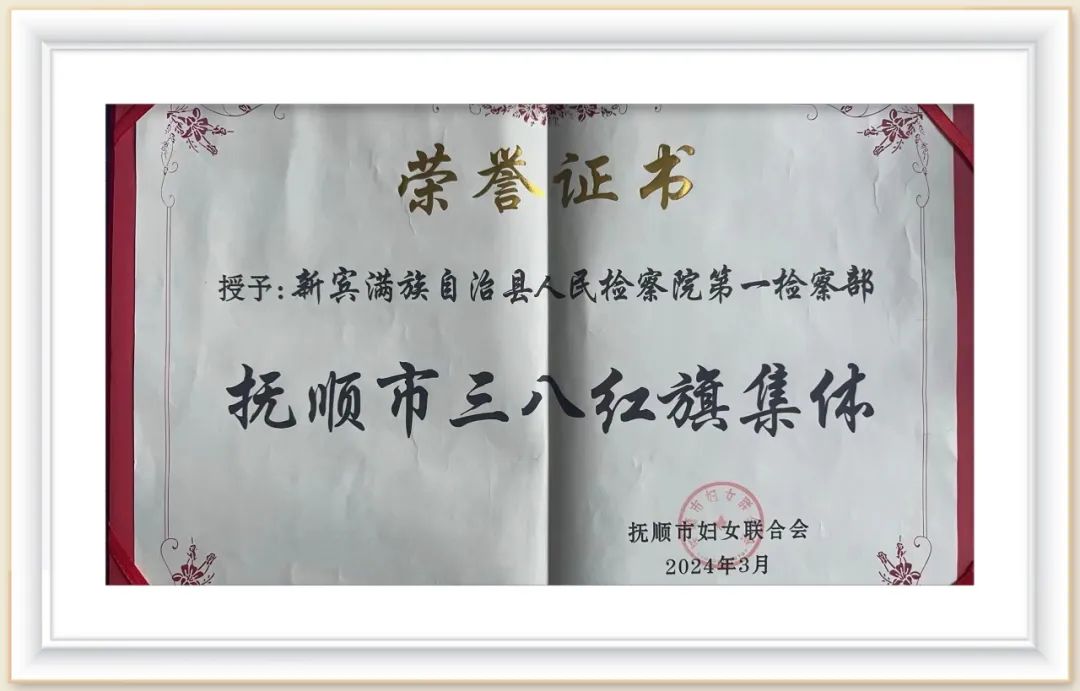 荣誉证书
授予:新宾满族自治县人民检察院第一检察部
抚顺市三八红旗集体
抚顺市妇女联合会
2024年3月